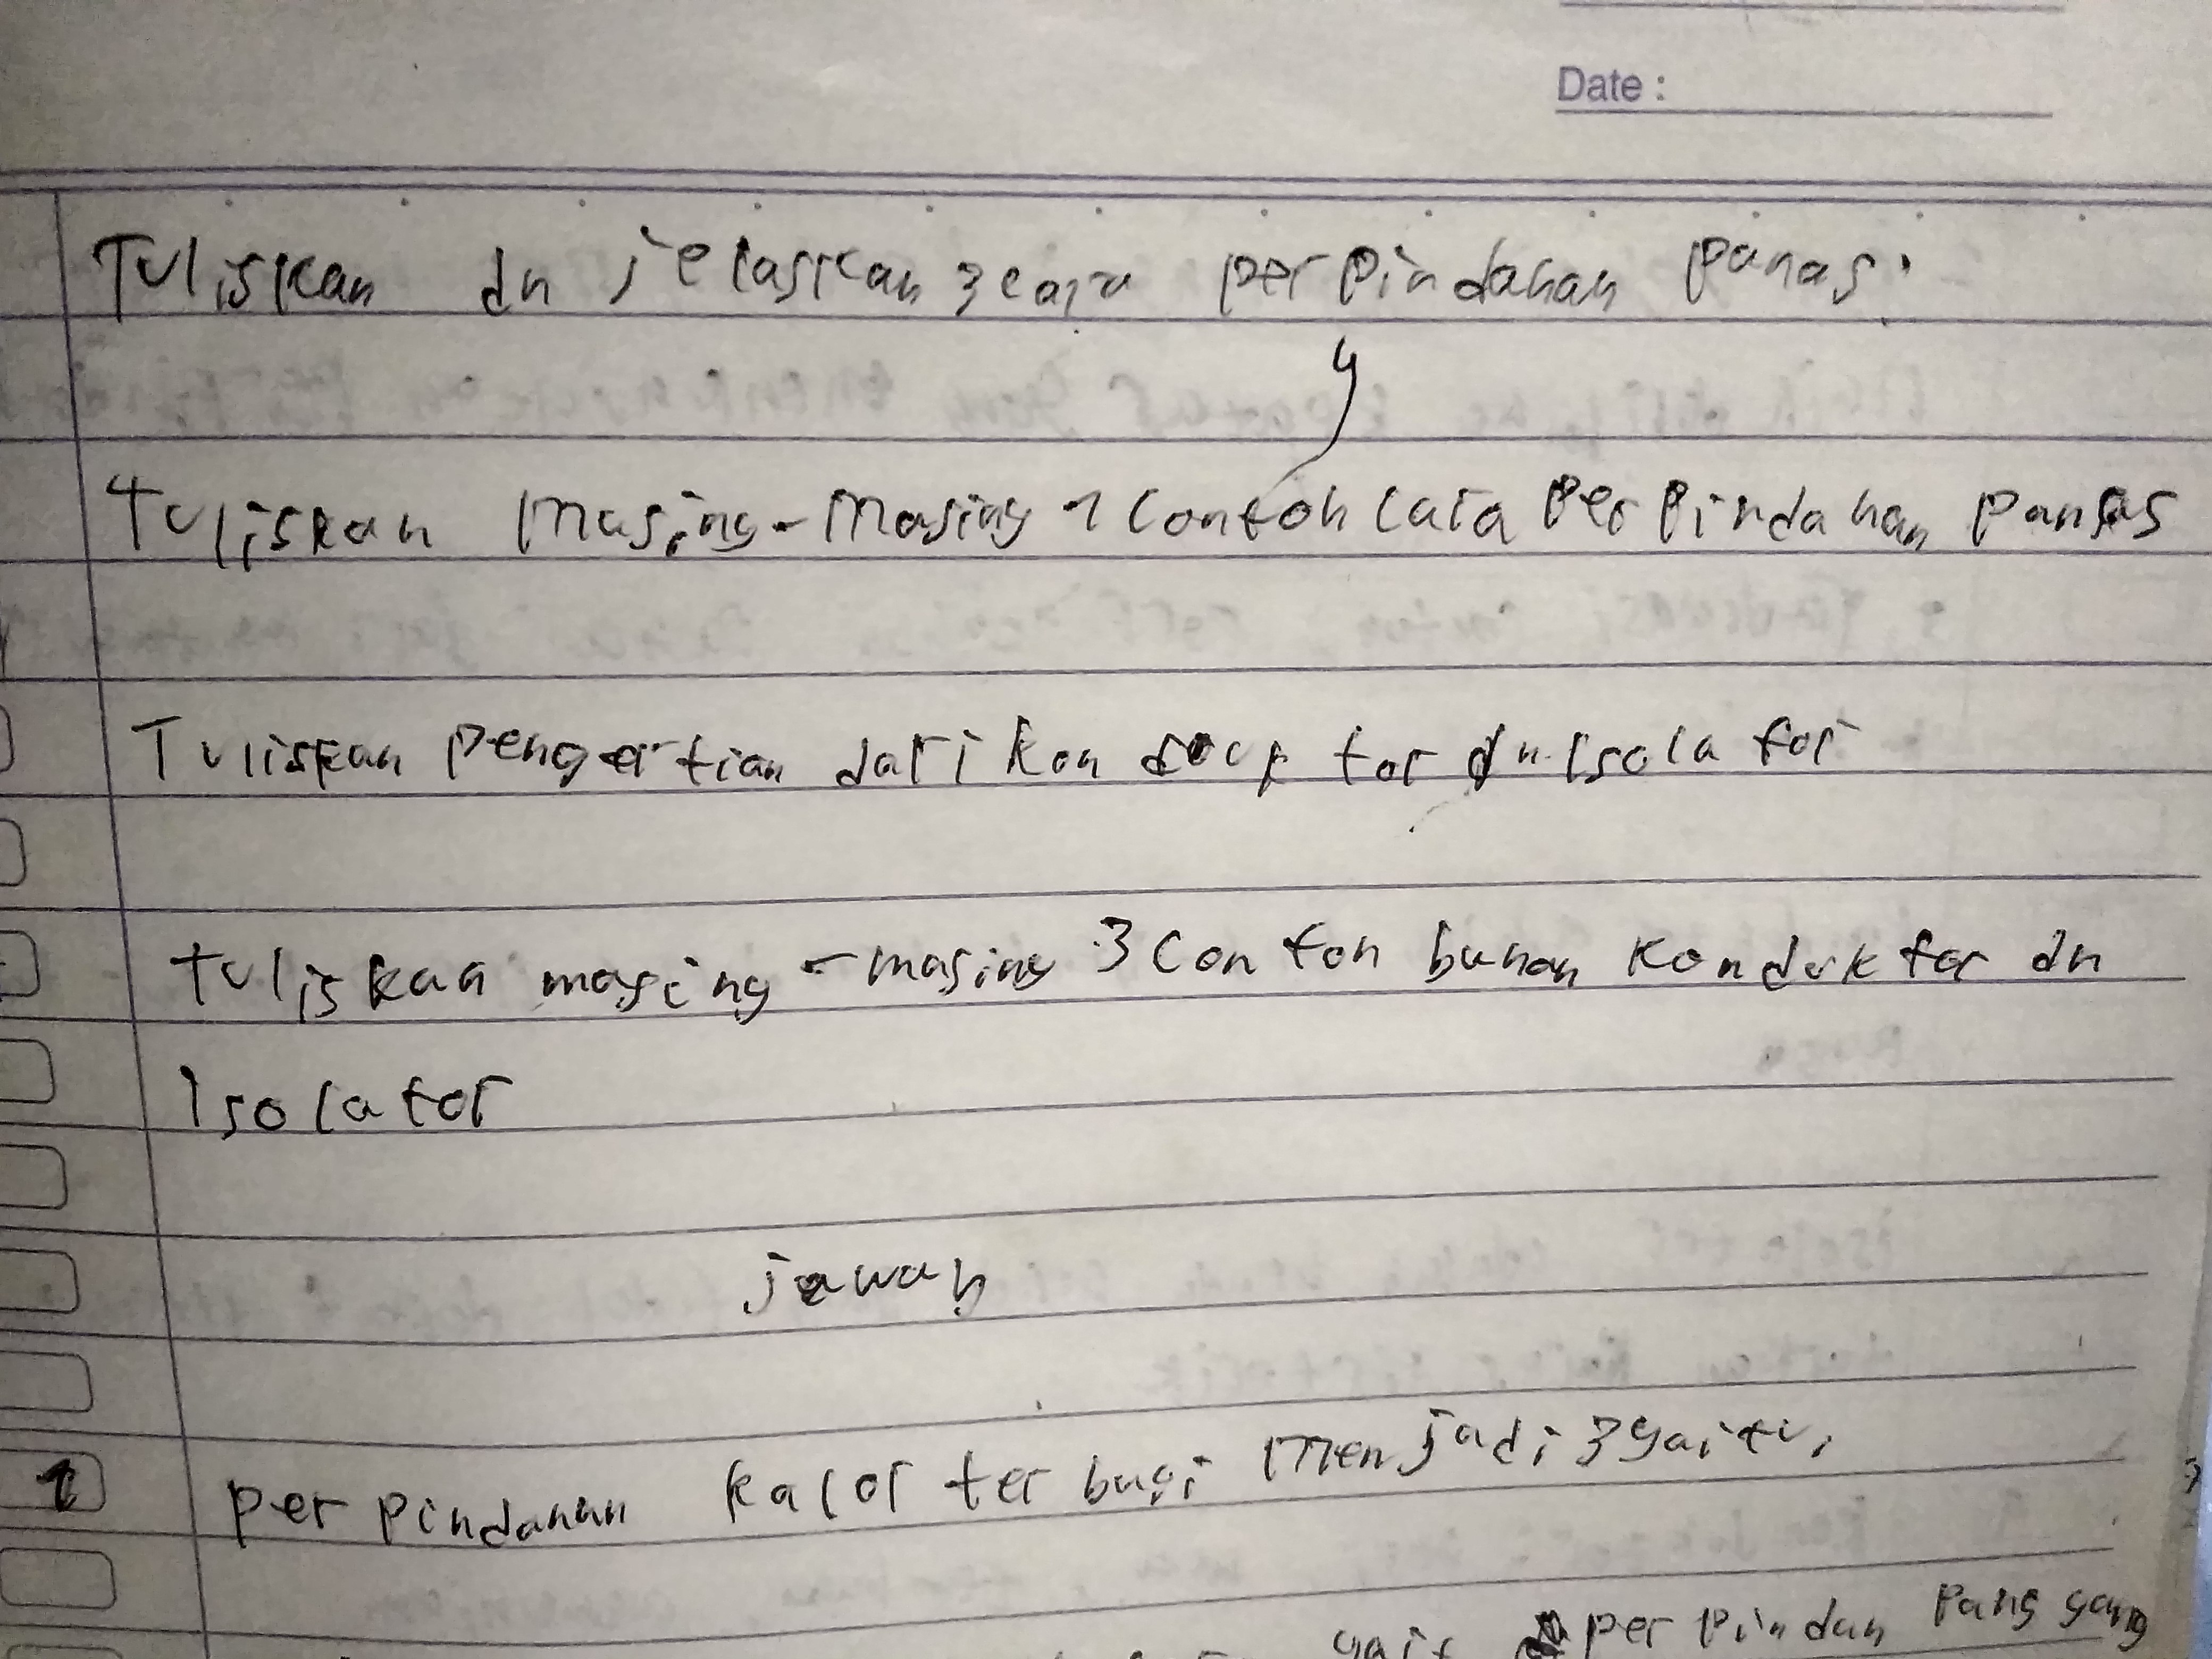 Date :
Tuliskan dn jelaskan 3 cara perpindahan panas.
tuliskan masing-masing 1 contoh cara perpindahan panas
Tuliskan pengertian dari konduktor dn isolator
tuliskan masing-masing 3 contoh bahan konduktor dn
isolator
jawab
1 perpindahan kalor terbagi menjadi 3 yaitu,
perpindan pans yang